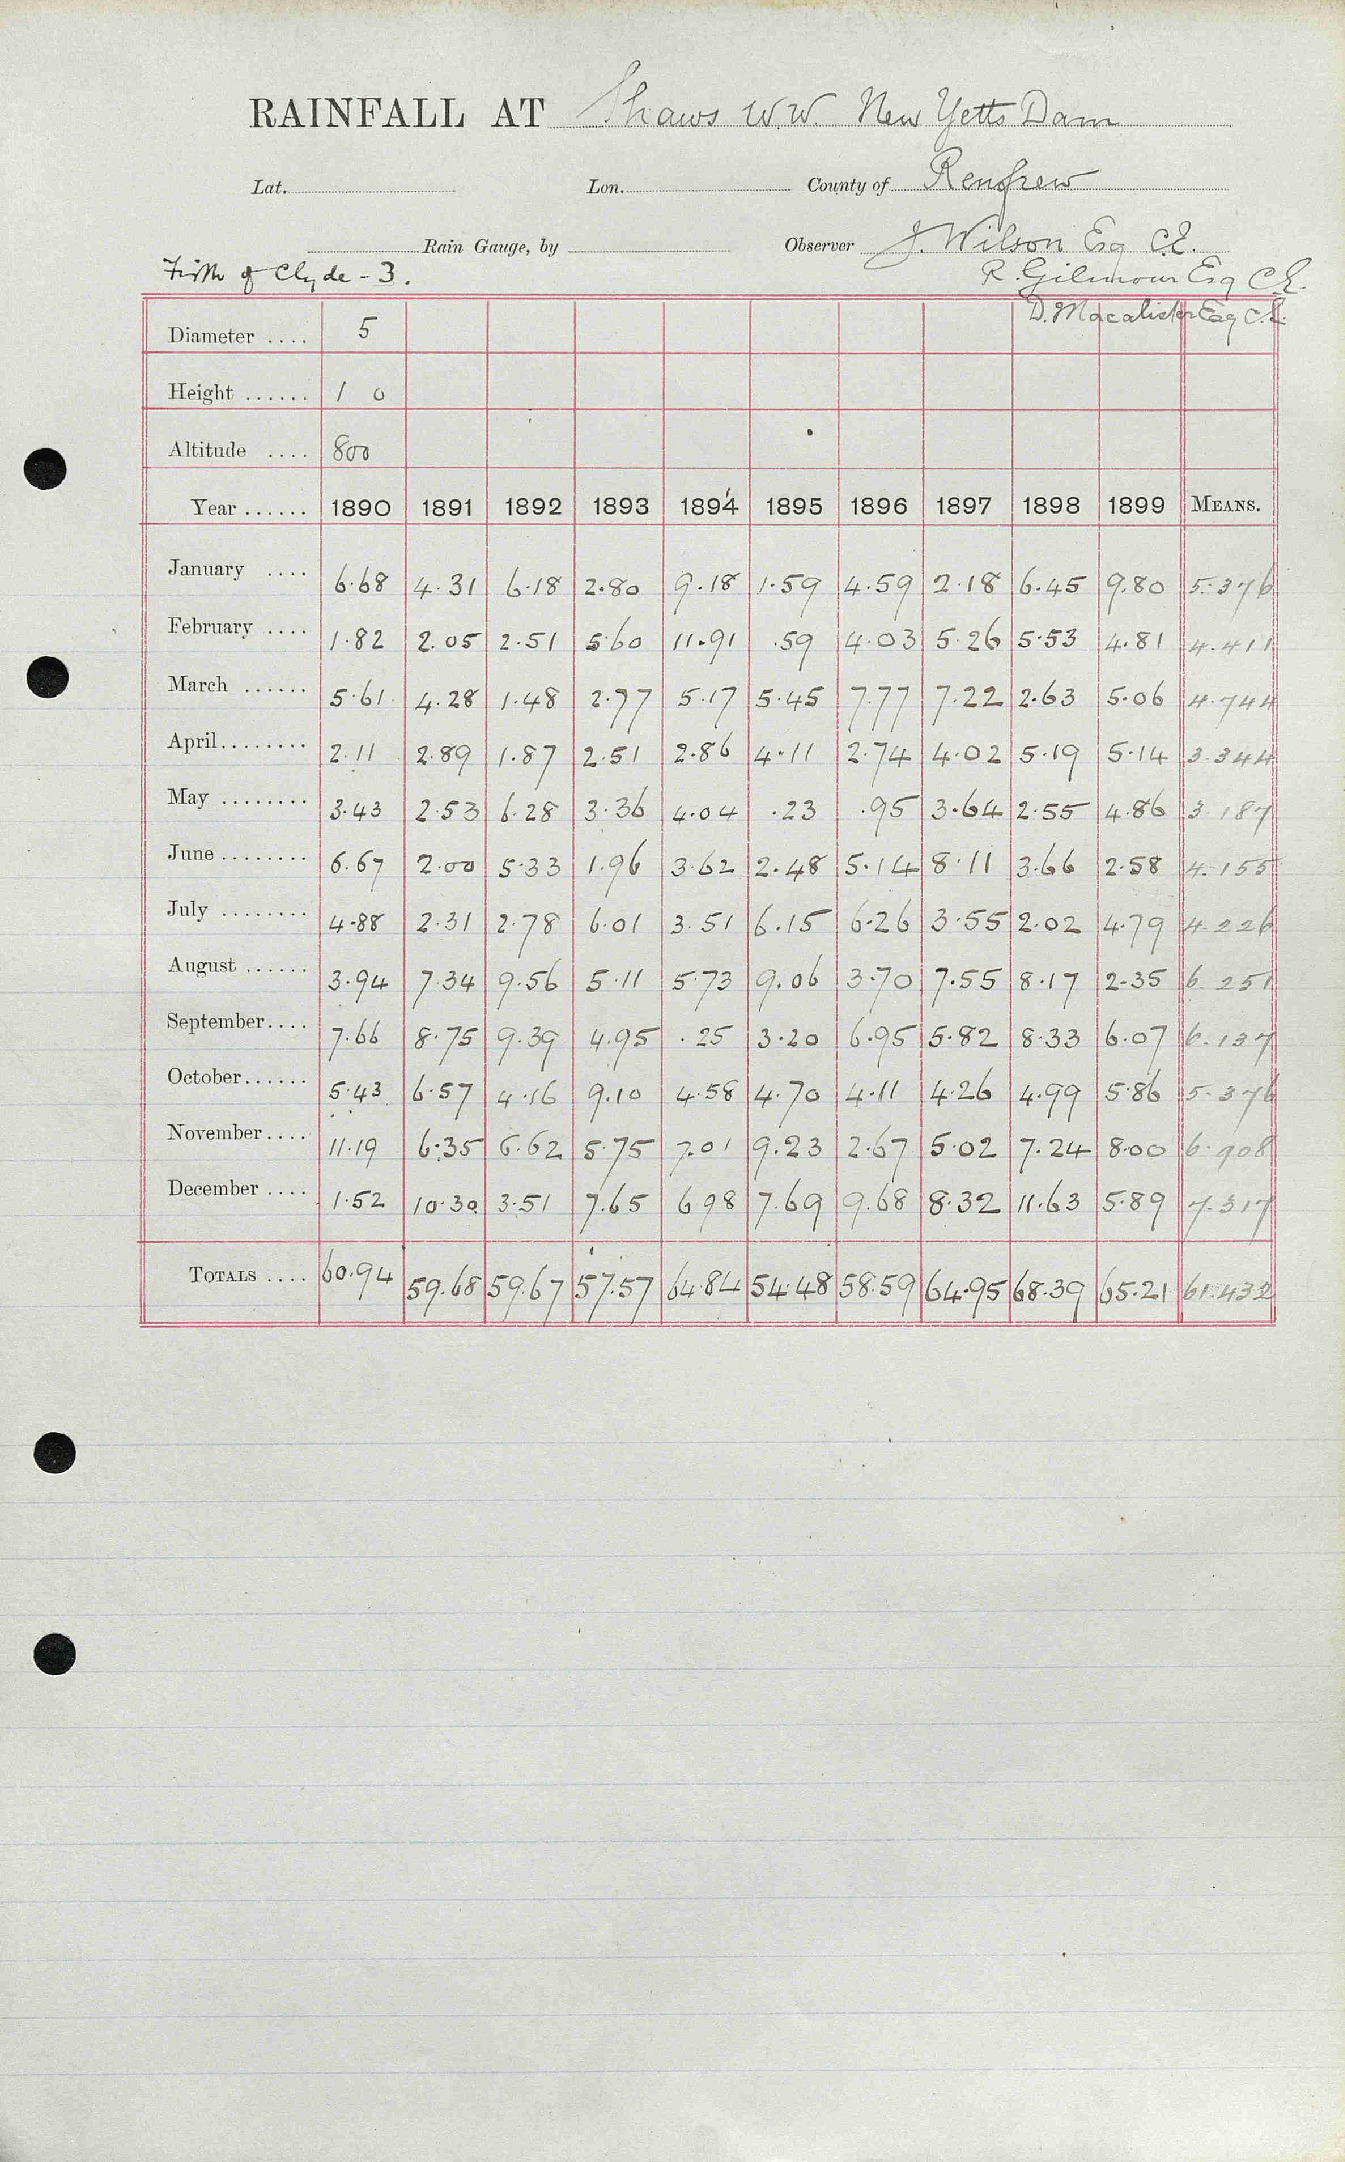 RAINFALL AT Shaws W.W. New Yetts Dam
Lat. Lon. County of Renfrew
Rain Gauge, by Observer J. Wilson Esq C.E.
Firth of Clyde - 3. R. Gilmour Esq C.E.
D. Macalister Esq C.E.
Diameter .... 5
Height ...... 1 0
Altitude .... 800
Year ...... 1890 1891 1892 1893 1894 1895 1896 1897 1898 1899 MEANS.
January .... 6.68 4.31 6.18 2.80 9.18 1.59 4.59 2.18 6.45 9.80 5.376
February .... 1.82 2.05 2.51 5.60 11.91 .59 4.03 5.26 5.53 4.81 4.411
March ...... 5.61 4.28 1.48 2.77 5.17 5.45 7.77 7.22 2.63 5.06 4.744
April........ 2.11 2.89 1.87 2.51 2.86 4.11 2.74 4.02 5.19 5.14 3.344
May ........ 3.43 2.53 6.28 3.36 4.04 .23 .95 3.64 2.55 4.86 3.187
June ........ 6.67 2.00 5.33 1.96 3.62 2.48 5.14 8.11 3.66 2.58 4.155
July ........ 4.88 2.31 2.78 6.01 3.51 6.15 6.26 3.55 2.02 4.79 4.226
August ...... 3.94 7.34 9.56 5.11 5.73 9.06 3.70 7.55 8.17 2.35 6.251
September.... 7.66 8.75 9.39 4.95 .25 3.20 6.95 5.82 8.33 6.07 6.137
October...... 5.43 6.57 4.16 9.10 4.58 4.70 4.11 4.26 4.99 5.86 5.376
November.... 11.19 6.35 6.62 5.75 7.01 9.23 2.67 5.02 7.24 8.00 6.908
December .... 1.52 10.30 3.51 7.65 6.98 7.69 9.68 8.32 11.63 5.89 7.317
TOTALS .... 60.94 59.68 59.67 57.57 64.84 54.48 58.59 64.95 68.39 65.21 61.432